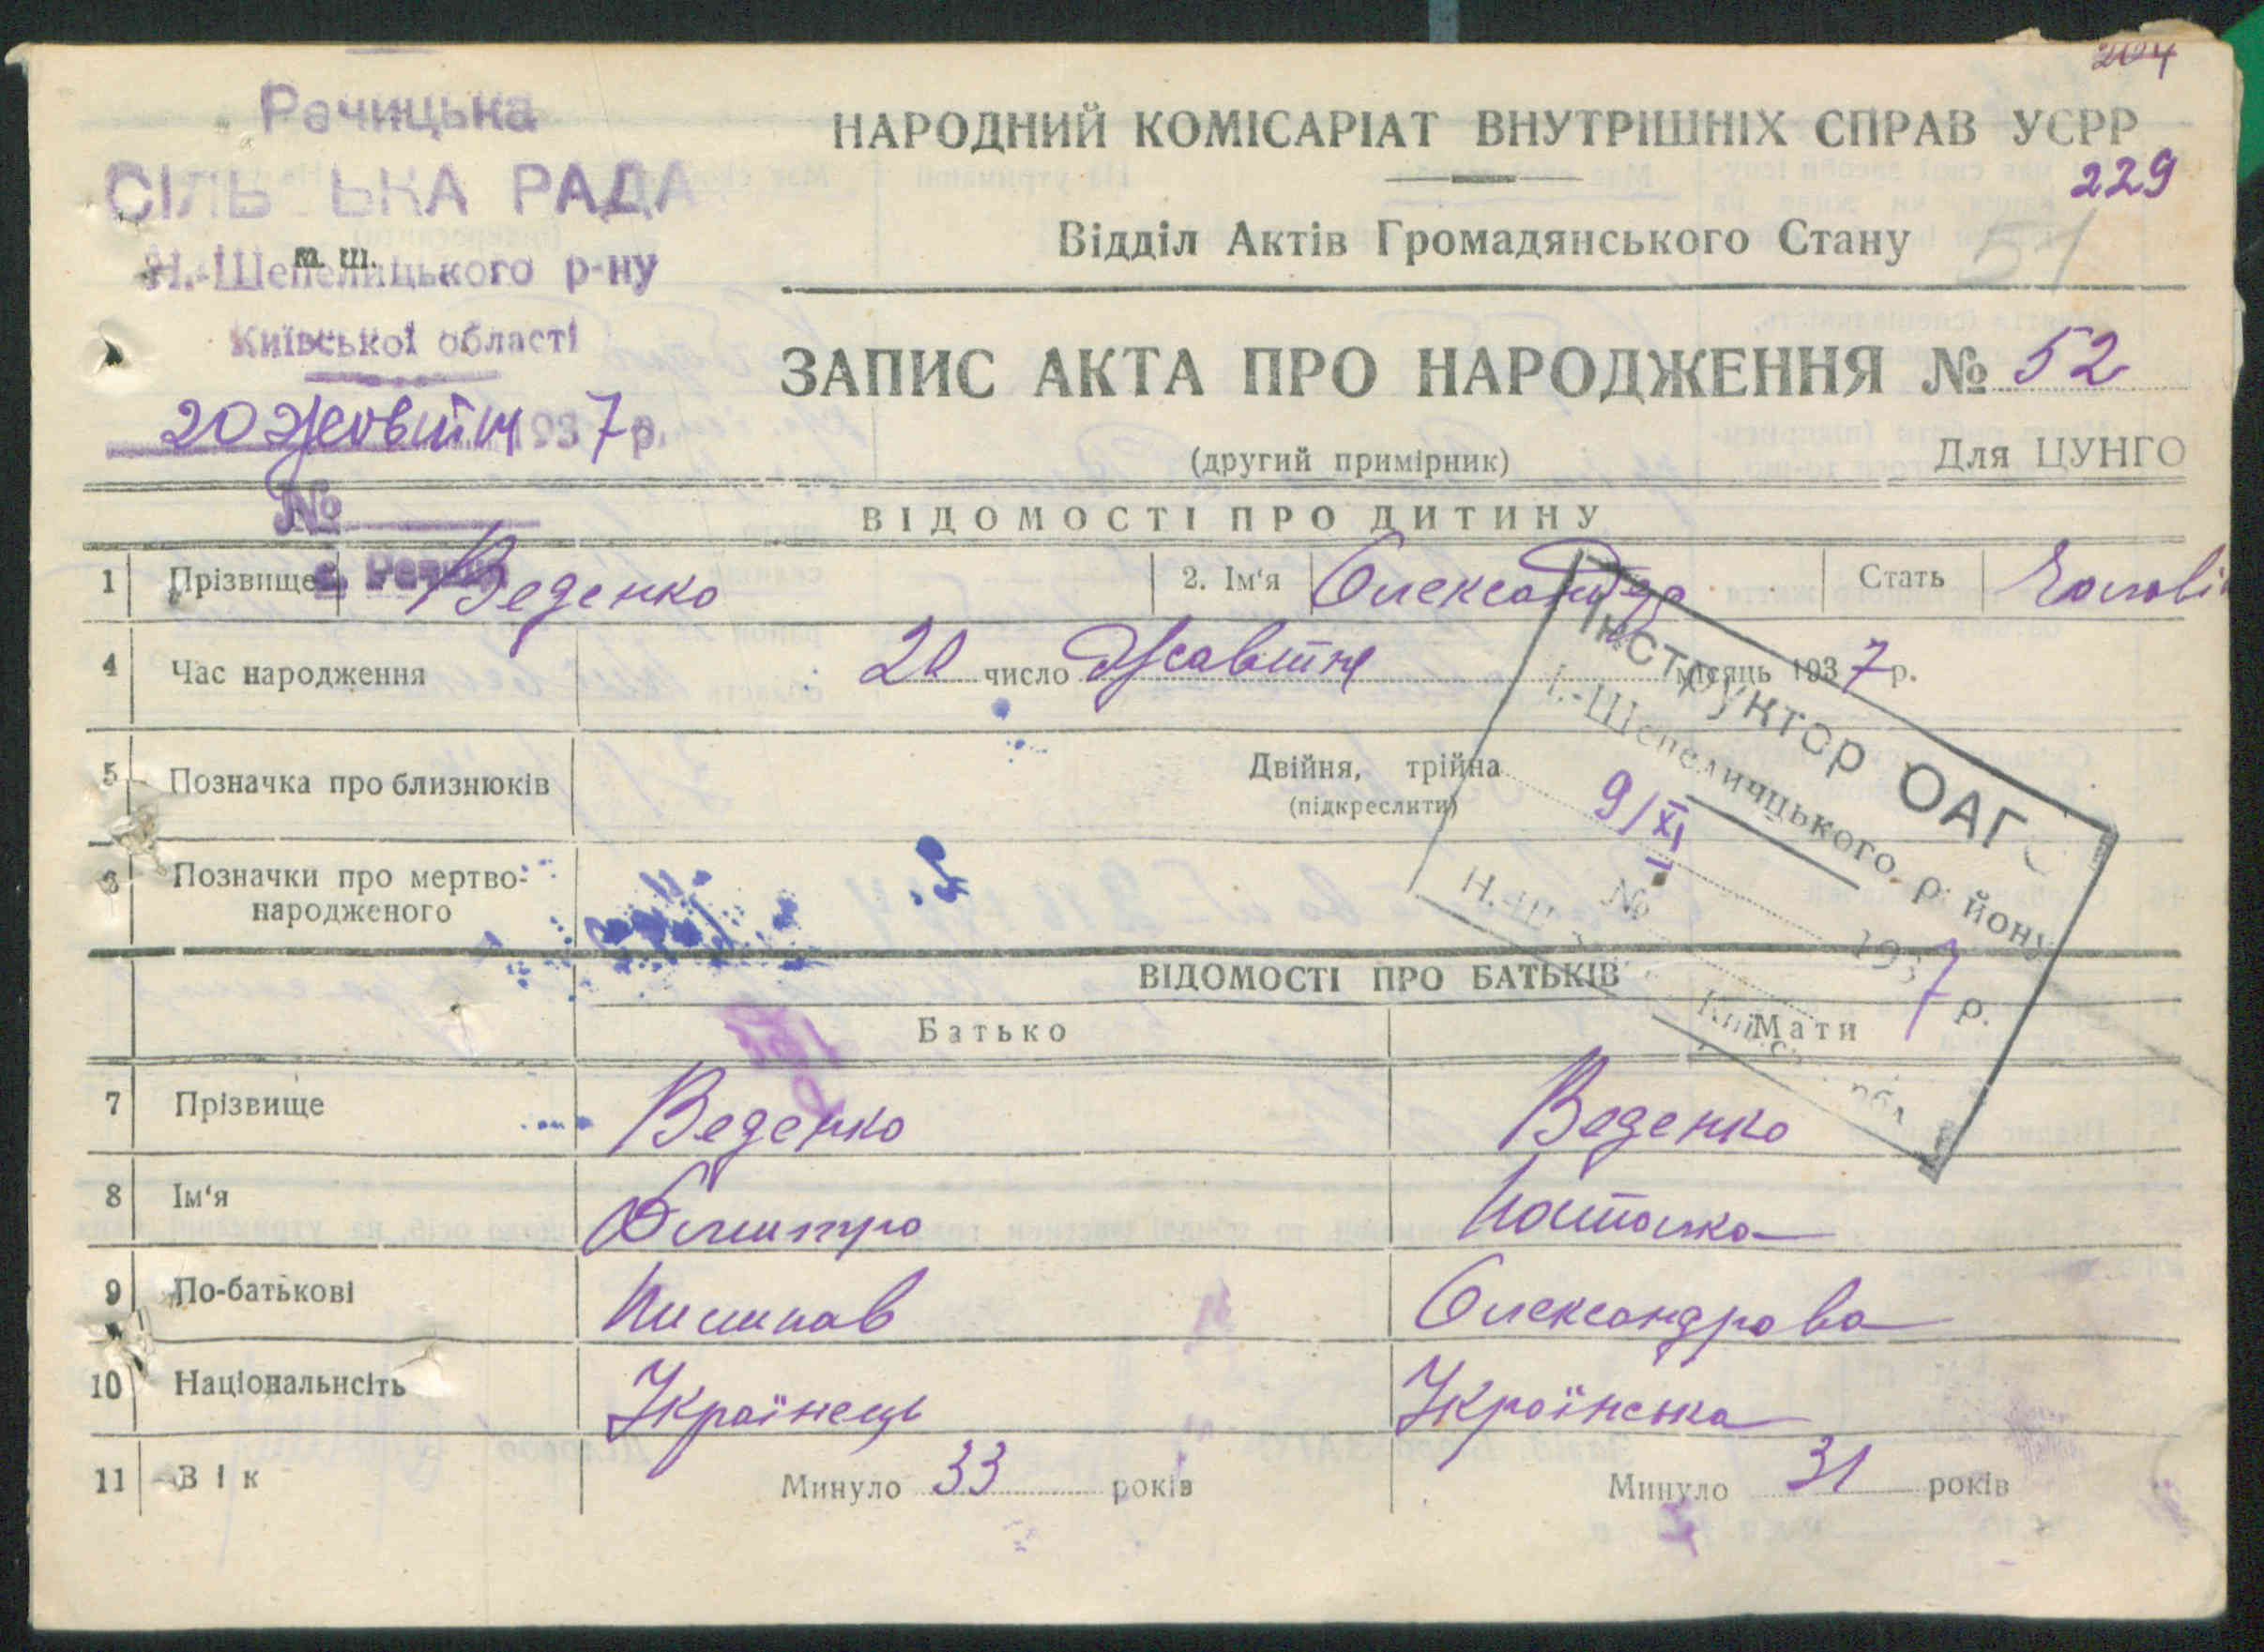 204
Речицька
СІЛЬ ЬКА РАДА
м. ш.
Н.-Шепелицького р-ну
Київської області
20 Жовтня 1937 р.
№
НАРОДНИЙ КОМІСАРІАТ ВНУТРІШНІХ СПРАВ УСРР
229
Відділ Актів Громадянського Стану
51
ЗАПИС АКТА ПРО НАРОДЖЕННЯ № 52
(другий примірник)
Для ЦУНГО
ВІДОМОСТІ ПРО ДИТИНУ
1 Прізвище Веденко 2. Ім'я Олександр Стать Чолові
4 Час народження 20 число Жовтня місяць 1937 р.
5 Позначка про близнюків Двійня, трійня
(підкреслити)
6 Позначки про мертво-
народженого
Інструктор ОАГС
Н.-Шепеличцького р йону
9/XI
№ 1937 р.
ВІДОМОСТІ ПРО БАТЬКІВ
Батько Мати
7 Прізвище Веденко Веденко
8 Ім'я Дмитро Наталка
9 По-батькові Олександрова
10 Національнсіть Українець Українська
11 Вік Минуло 33 років Минуло 31 років